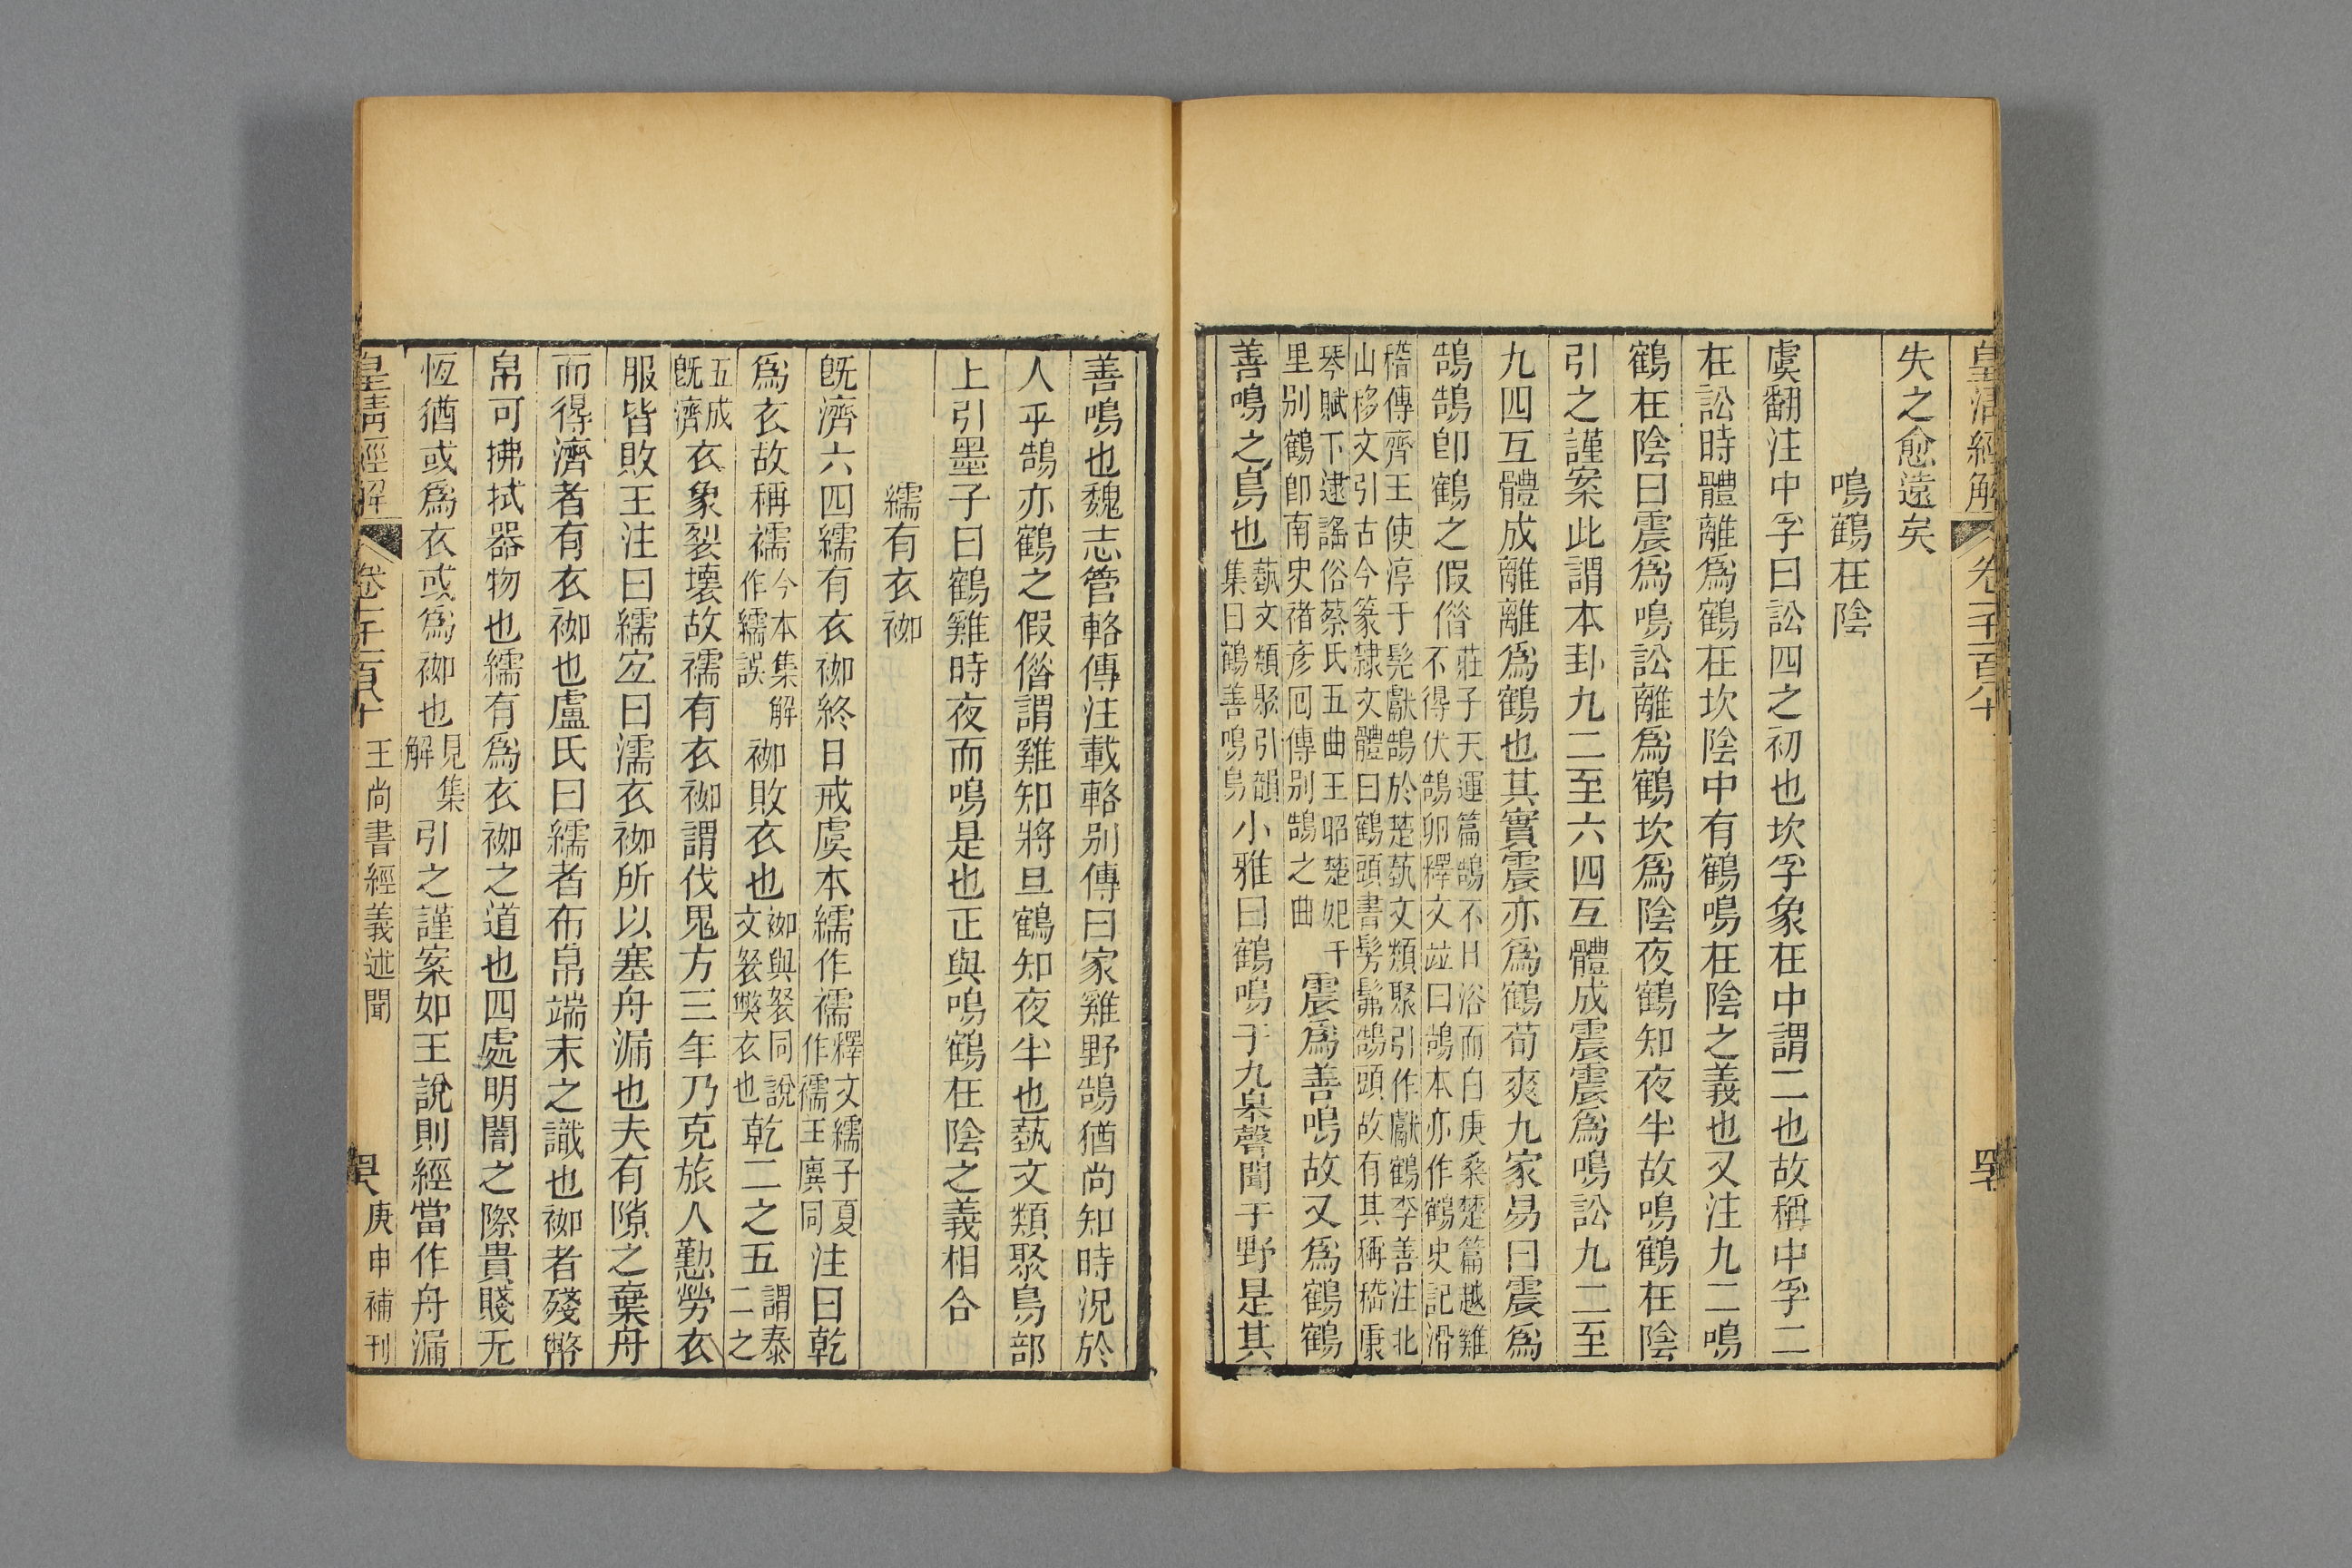 皇清經解 卷一千一百八十
失之愈遠矣
鳴鶴在陰
虞翻注中孚曰訟四之初也坎孚象在中謂二也故稱中孚二
在訟時體離爲鶴在坎陰中有鶴鳴在陰之義也又注九二鳴
鶴在陰曰震爲鳴訟離爲鶴坎爲陰夜鶴知夜半故鳴鶴在陰
引之謹案此謂本卦九二至六四互體成震震爲鳴訟九二至
九四互體成離離爲鶴也其實震亦爲鶴荀爽九家易曰震爲
鵠鵠卽鶴之假借
莊子天運篇鵠不日浴而白庚桑楚篇越雞
不得伏鵠卵釋文竝曰鵠本亦作鶴史記滑
稽傳齊王使淳于髡獻鵠於楚蓺文類聚引作獻鶴李善注北
山移文引古今篆隸文體曰鶴頭書髣髴鵠頭故有其稱嵇康
琴賦下逮謠俗蔡氏五曲王昭楚妃千
里别鶴卽南史褚彦回傳别鵠之曲
震爲善鳴故又爲鶴鶴
善鳴之鳥也
蓺文類聚引韻
集曰鶴善鳴鳥
小雅曰鶴鳴于九皋聲聞于野是其
善鳴也魏志管輅傳注載輅别傳曰家雞野鵠猶尚知時況於
人乎鵠亦鶴之假借謂雞知將旦鶴知夜半也蓺文類聚鳥部
上引墨子曰鶴雞時夜而鳴是也正與鳴鶴在陰之義相合
繻有衣袽
旣濟六四繻有衣袽終日戒虞本繻作襦
釋文繻子夏
作襦王廙同
注曰乾
爲衣故稱襦
今本集解
作繻誤
袽敗衣也
袽與袈同說
文袈弊衣也
乾二之五
謂泰
二之
五成
旣濟
衣象裂壞故襦有衣袽謂伐鬼方三年乃克旅人勤勞衣
服皆敗王注曰繻宐曰濡衣袽所以塞舟漏也夫有隙之棄舟
而得濟者有衣袽也盧氏曰繻者布帛端末之識也袽者殘幣
帛可拂拭器物也繻有爲衣袽之道也四處明闇之際貴賤无
恆猶或爲衣或爲袽也
見集
解
引之謹案如王說則經當作舟漏
皇清經解 卷一千一百八十 王尚書經義述聞 庚申補刊